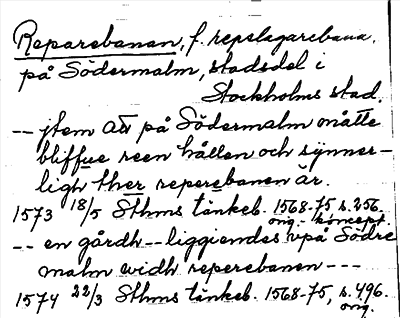 Reparebanan, f. repslagarebana.
på Södermalm, stadsdel i
Stockholms stad.
-- jtem att på Södermalm måtte
bliffue reen hållen och synner-
ligh ther reperebanen är.
1573 18/5 Sthms tänkeb. 1568-75 s. 256.
orig.- koncept.
-- en gårdh -- liggiendes vpå Södre
malm widh reperebanen ---
1574 22/3 Sthms tänkeb. 1568-75, s. 496.
orig.